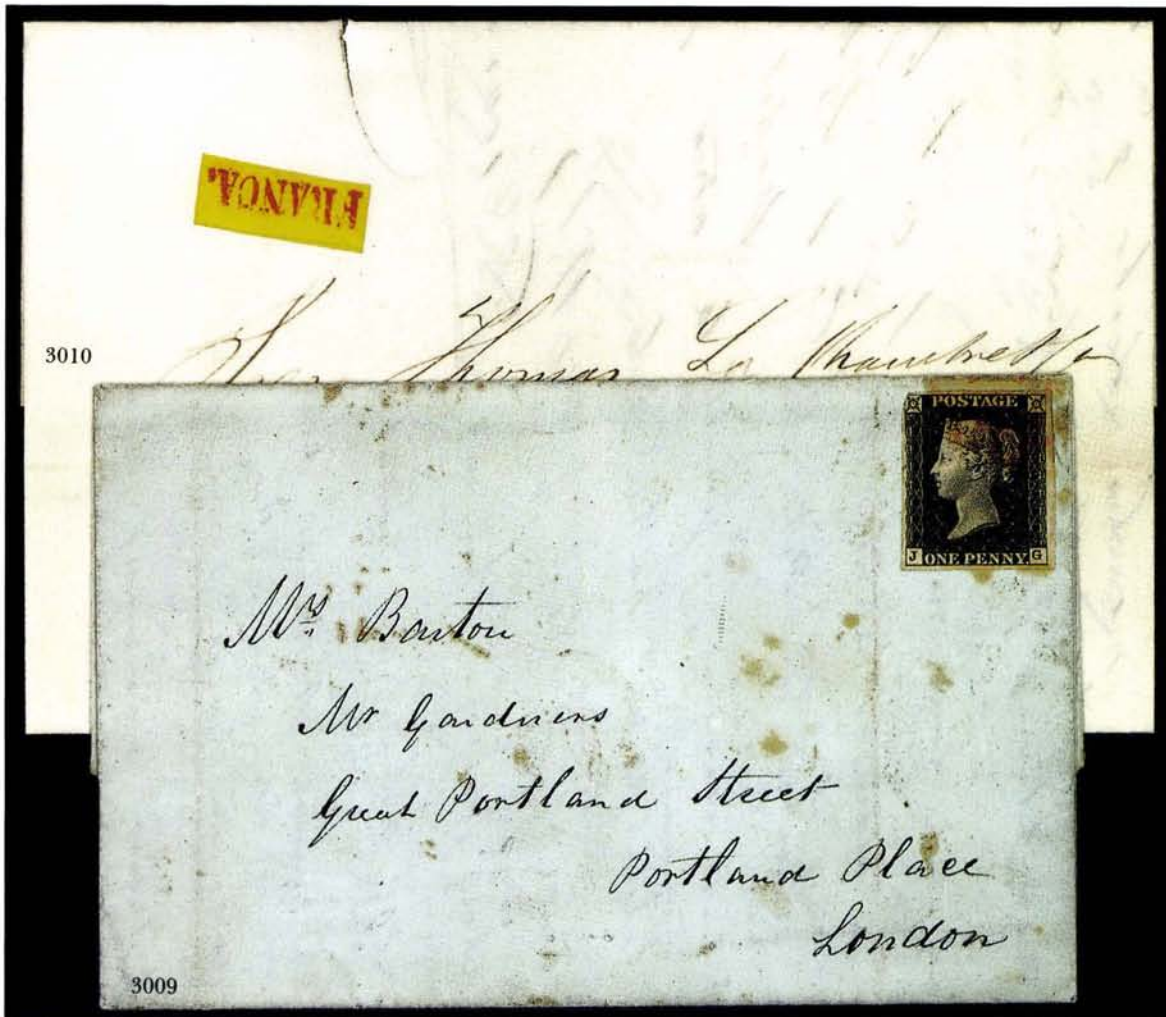 FRANCA.
3010
Thomas La Chambre
POSTAGE
J ONE PENNY. G
Mrs. Barton
Mr Gardners
Great Portland Street
Portland Place
London
3009